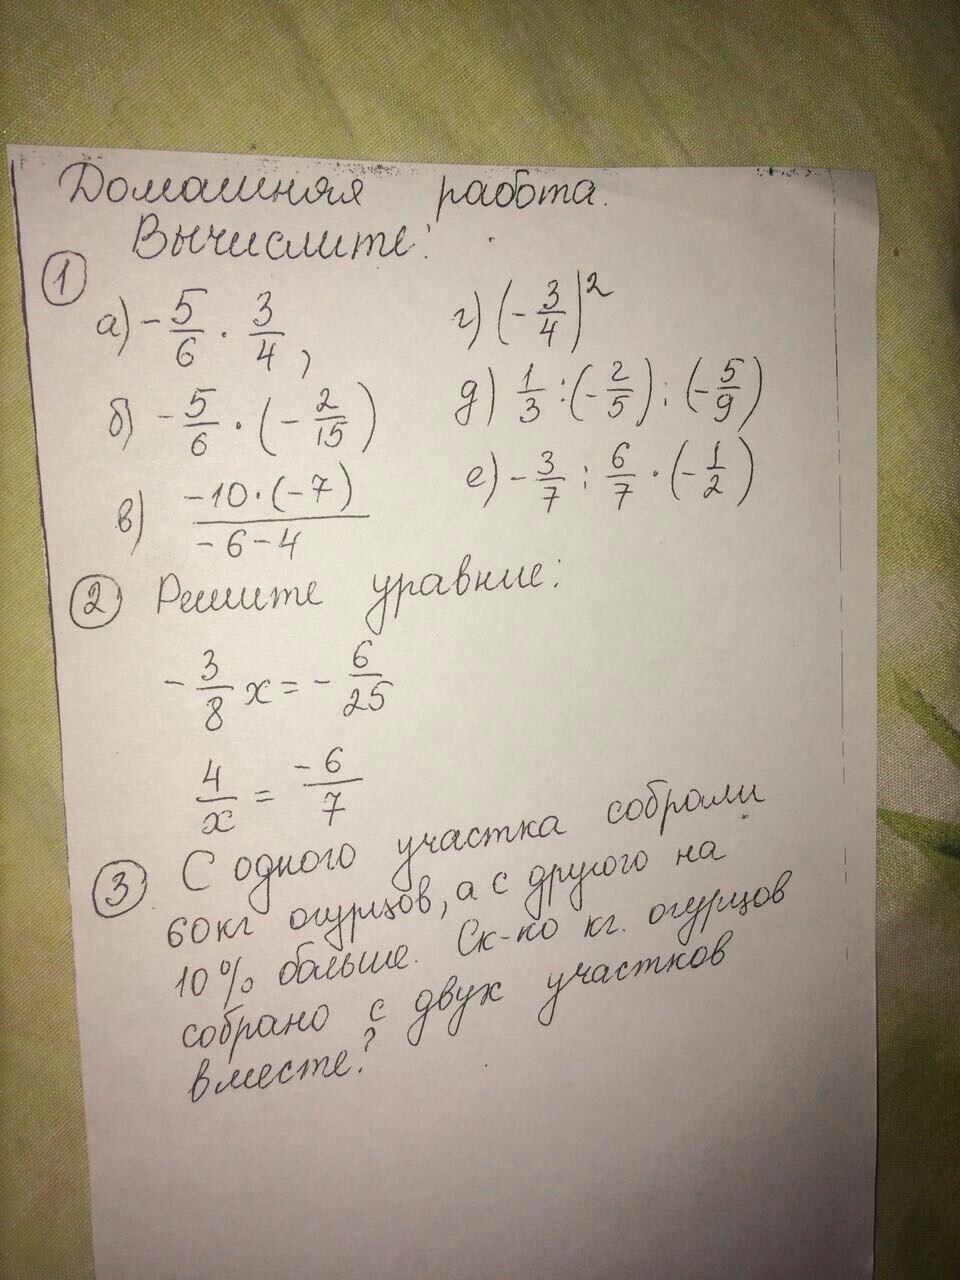 Домашняя работа.
Вычислите:
① а) -5/6 · 3/4,
б) -5/6 · (-2/15)
в) -10·(-7)/-6-4
г) (-3/4)²
д) 1/3 : (-2/5) : (-5/9)
е) -3/7 : 6/7 · (-1/2)
② Решите уравние:
-3/8 x = -6/25
4/x = -6/7
③ С одного участка собрали
60кг огурцов, а с другого на
10% больше. Ск-ко кг. огурцов
собрано с двух участков
вместе?